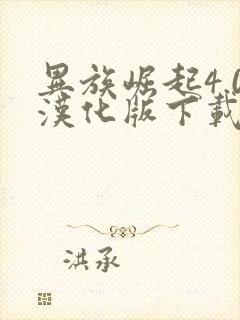 異族崛起4.0
漢化版下載
洪承